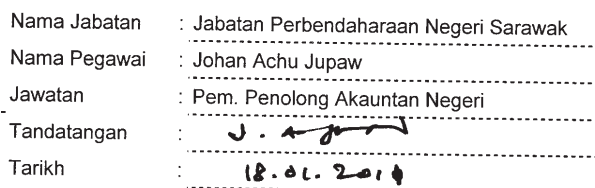 Nama Jabatan : Jabatan Perbendaharaan Negeri Sarawak
Nama Pegawai : Johan Achu Jupaw
Jawatan : Pem. Penolong Akauntan Negeri
Tandatangan :
Tarikh :